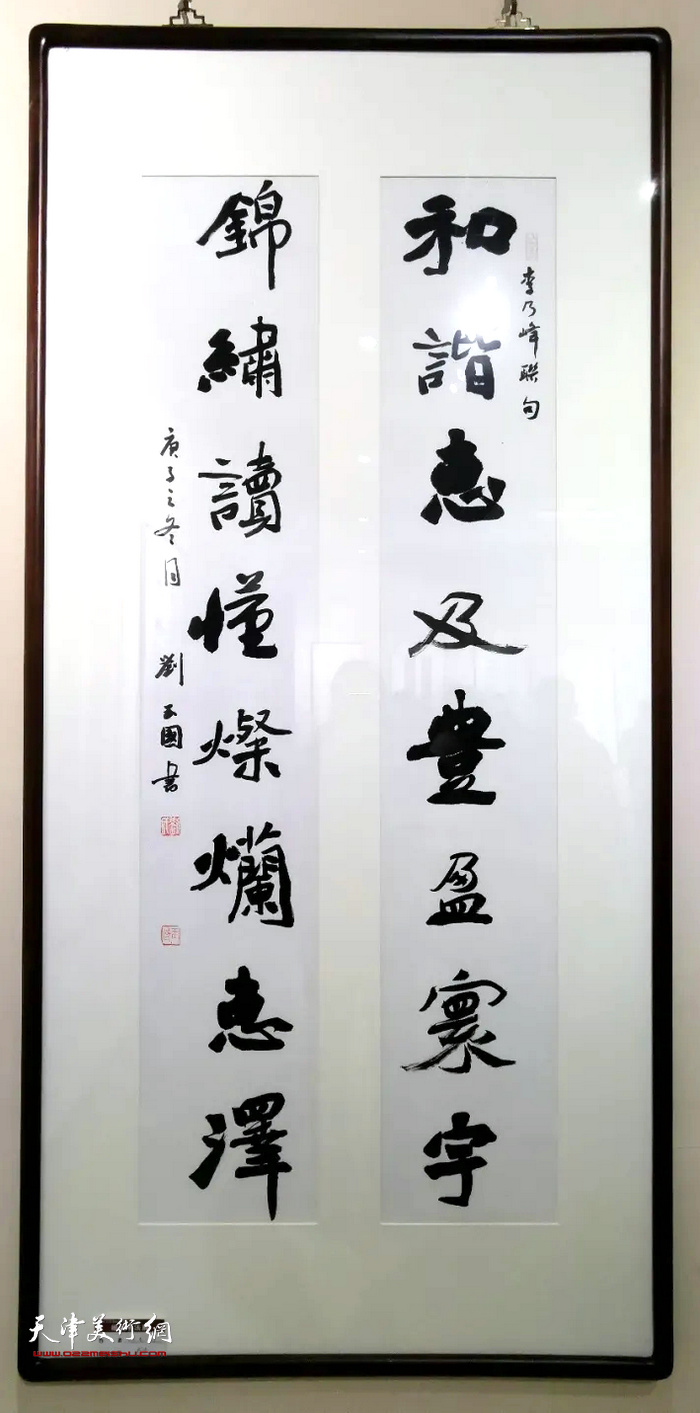 和諧惠及豊盈寰宇
李乃峰聯句
錦繡讀懂燦爛惠澤
庚子之冬月 劉正國書
天津美術網